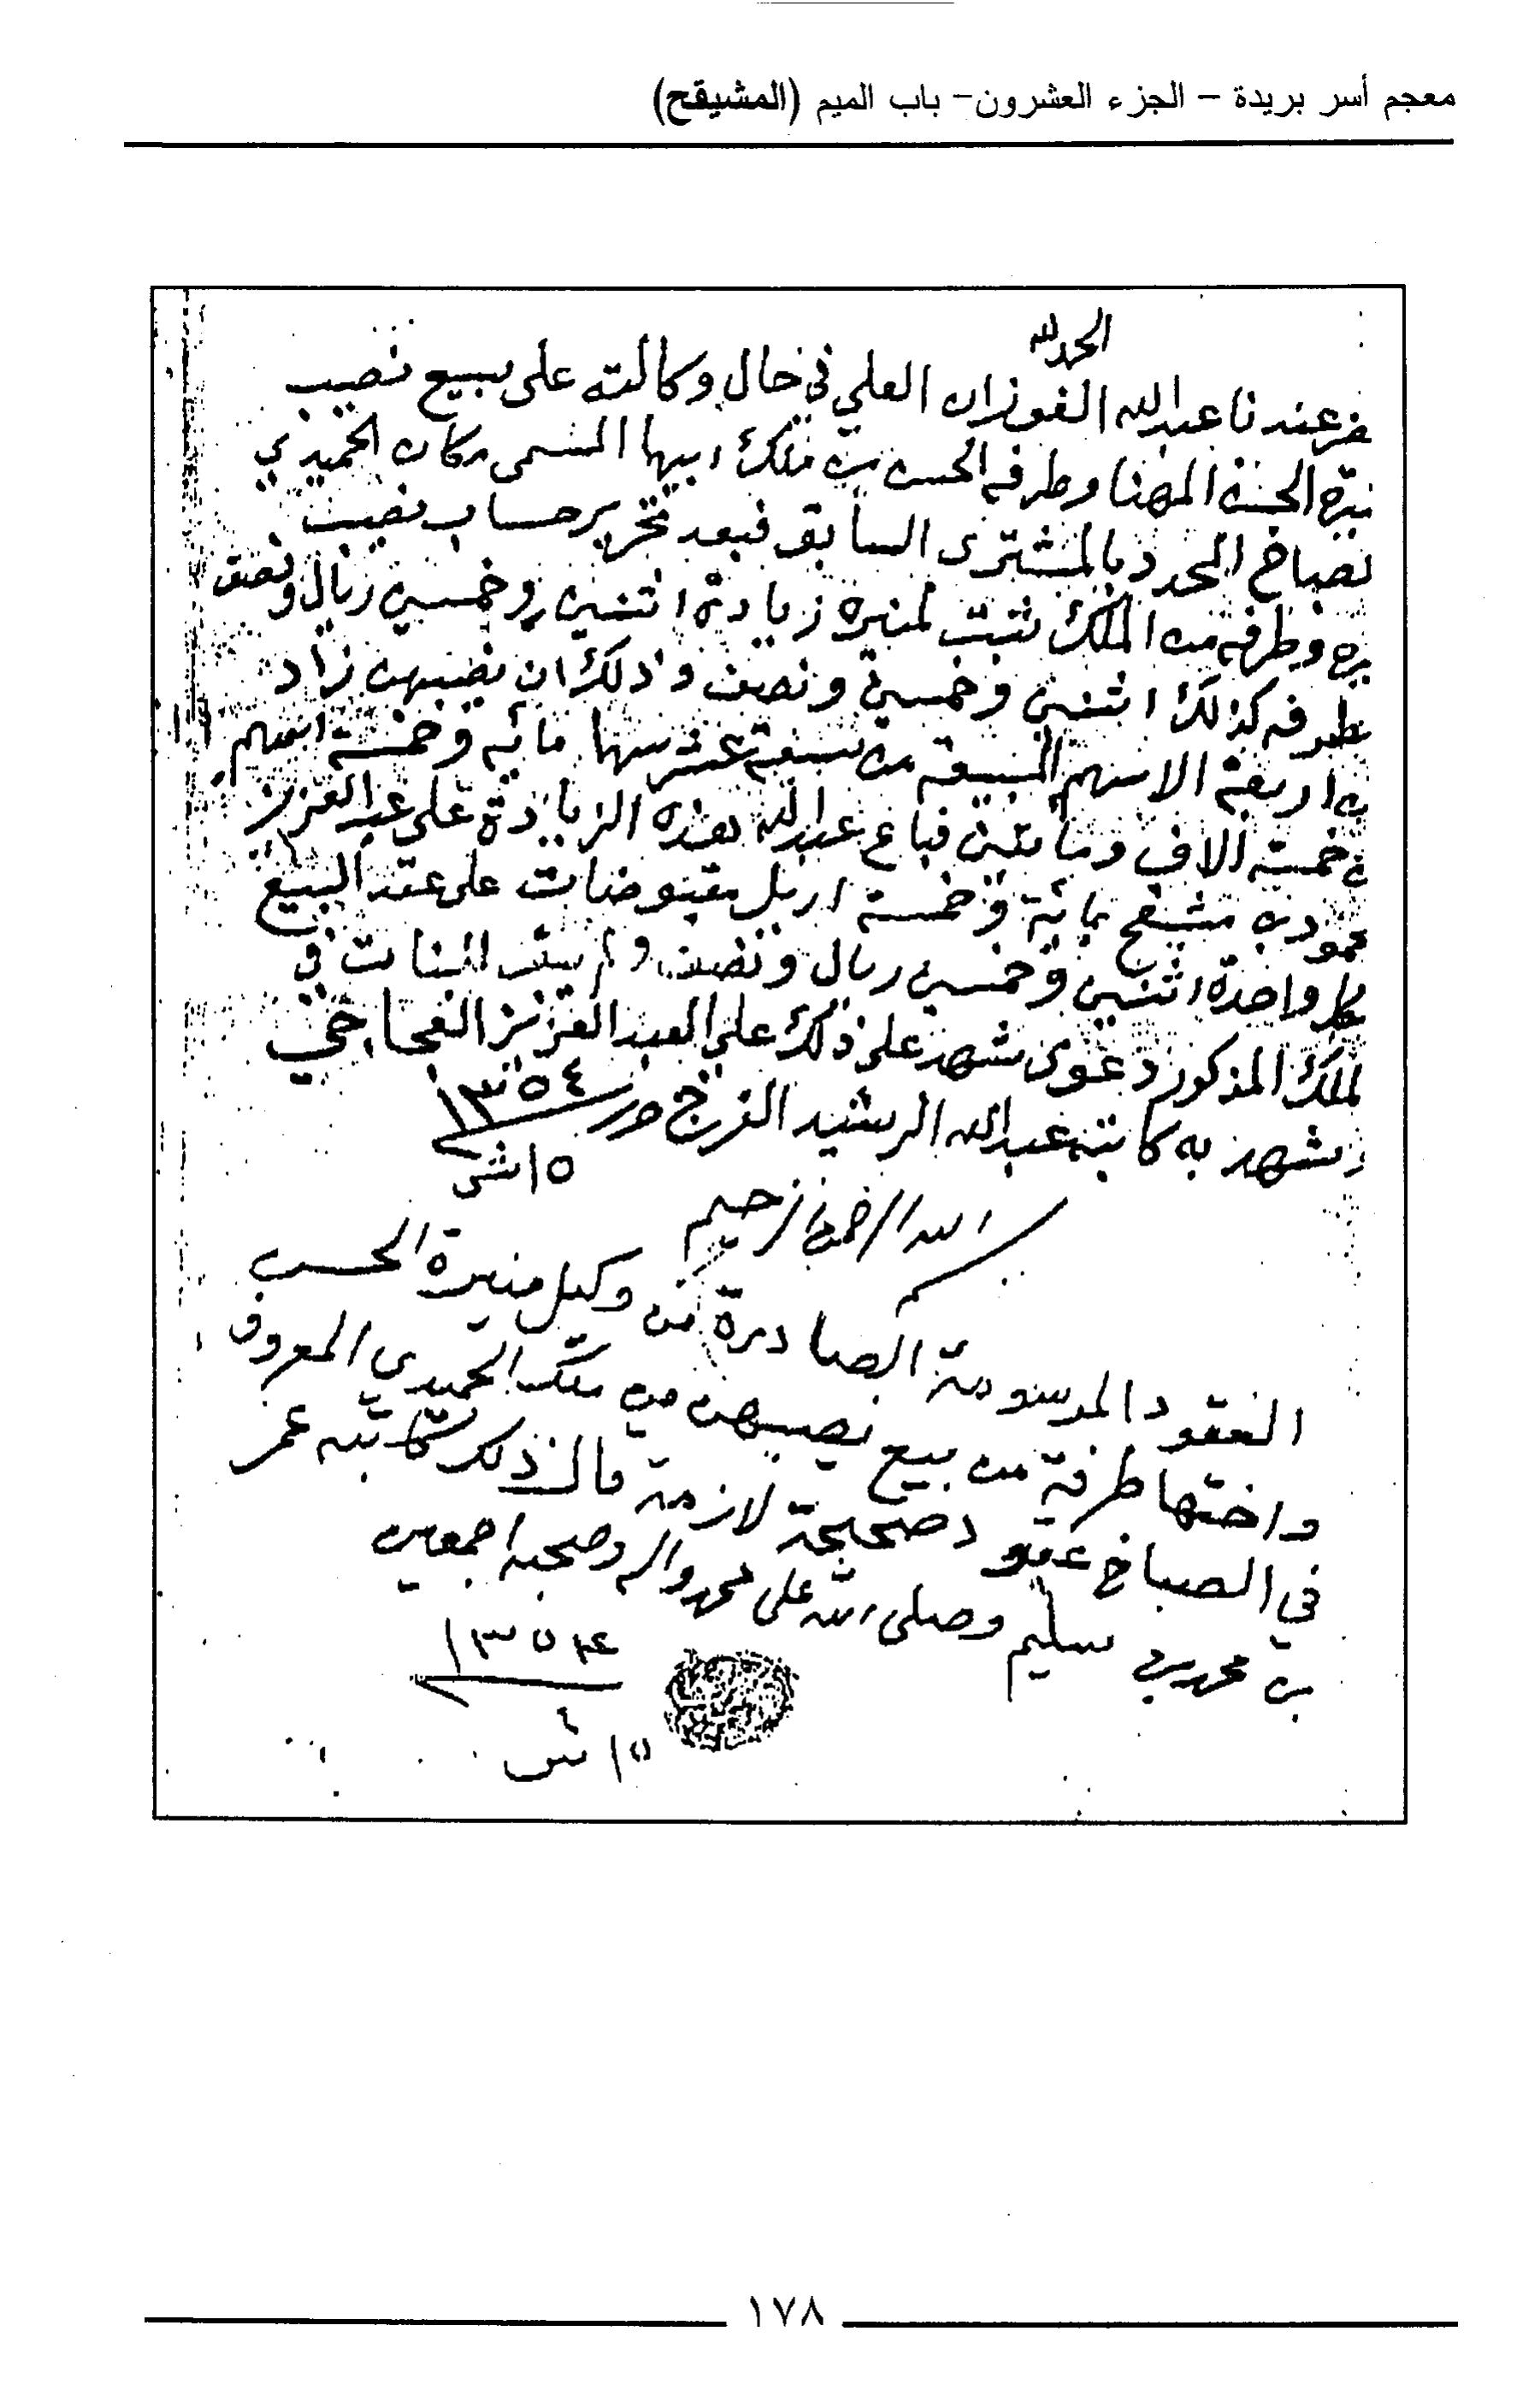 معجم أسر بريدة – الجزء العشرون– باب الميم (المشيقح)
الحمد لله
عندنا عبدالله الفوزان العلي في حال وكالته على بيع نصيب
الحسن المهنا وطرفه الحسن من ملك ابيها المسمى مكان الحميدي
بصباخ المحدد بالمشترى السابق فبعد تحرير حساب نصيب
وطرفه من الملك ثبت لمنيره زيادة اثنين وخمسين ريال ونصف
طرفه كذلك اثنين وخمسين ونصف وذلك ان نصيبهن زاد
اربعة الاسهم المبيعه من سبعة عشر سهما مائه وخمسة اسهم
خمسة الاف ومايتين فباع عبدالله هذه الزيادة على عبدالعزيز
حمود مشيقح بمائة وخمسة اريل مقبوضات على عقد البيع
كل واحدة اثنين وخمسين ريال ونصف ولم يبق للبنات في
الملك المذكور دعوى شهد على ذلك علي العبدالعزيز العجاجي
وشهد به كاتبه عبدالله الرشيد الفرج حرر ١٣٥٤
١٥ ش
بسم الله الرحمن الرحيم
العقود المرسومة الصادرة من وكيل منيرة الحسن
واختها طرفة من بيع نصيبهن من ملك الحميدي المعروف
في الصباخ عقود صحيحة لازمة قال ذلك كاتبه عمر
بن محمد بن سليم وصلى الله على محمد واله وصحبه اجمعين
١٣٥٤
١٥ ش
١٧٨